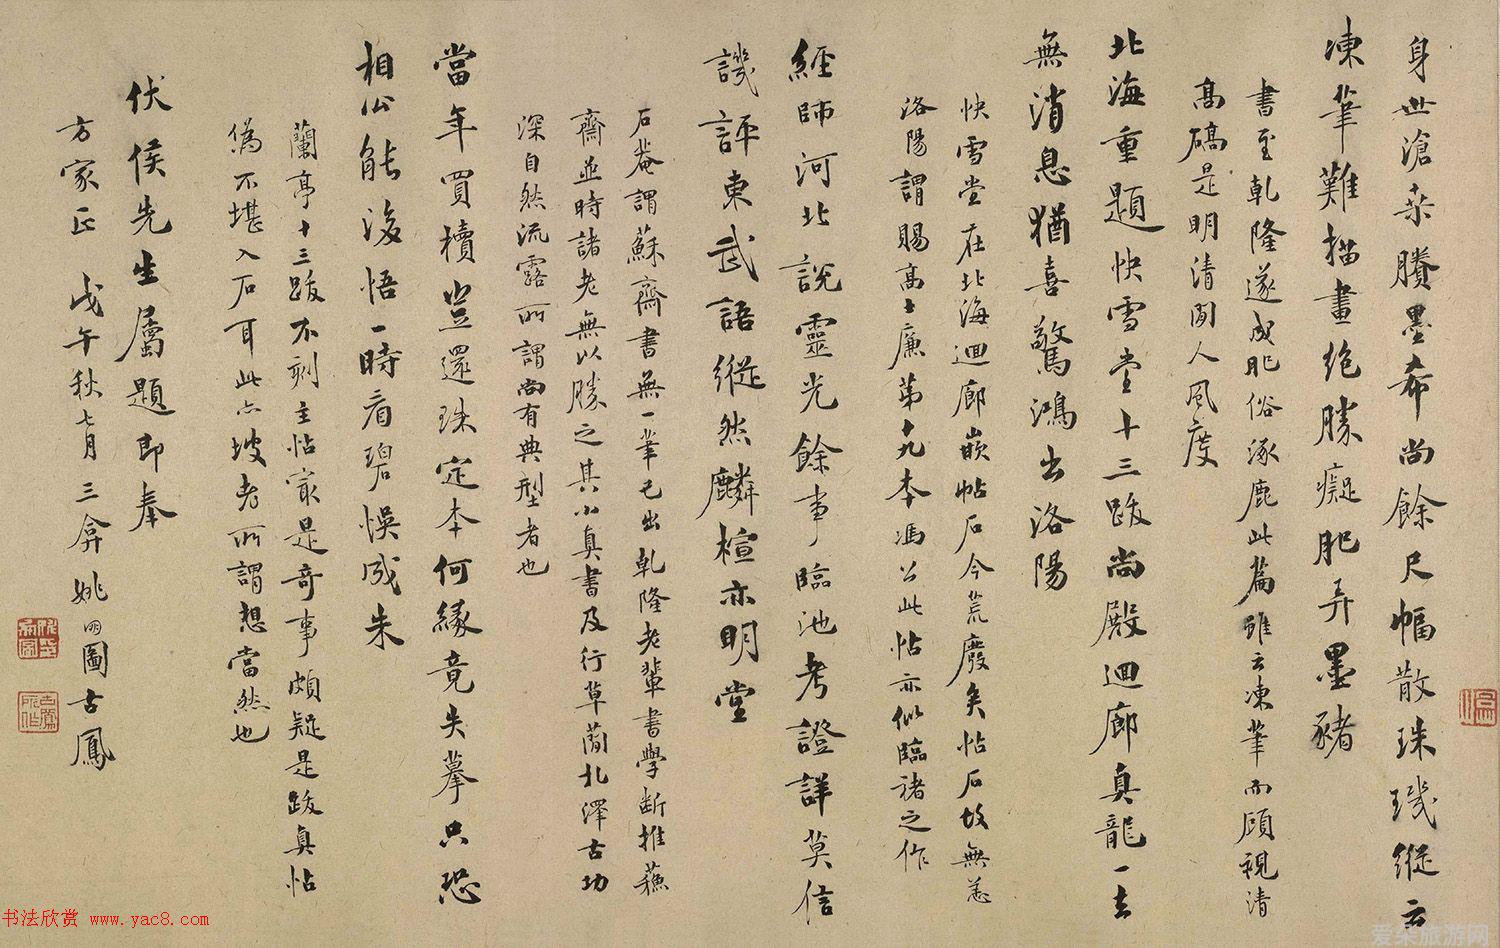 身世滄桒賸墨希尚餘尺幅散珠璣縱云
凍筆難描畫絶勝癡肥弄墨豬
書至乾隆遂成肥俗涿鹿此篇雖云凍筆而顧視清
高礄是明清間人風度
北海重題快雪堂十三跋尚殿迴廊真龍一去
無消息猶喜驚鴻出洛陽
快雪堂在北海迴廊嵌帖石今荒廢矣帖石故無恙
洛陽謂賜高士廉第十九本馮公此帖亦似臨褚之作
經師河北説靈光餘事臨池考證詳莫信
譏評東武語縱然麟楦亦明堂
石菴謂蘇齋書無一筆已出乾隆老輩書學斷推蘓
齋並時諸老無以勝之其小真書及行草蕳札澤古功
深自然流露所謂尚有典型者也
當年買櫝豈還珠定本何緣竟失摹只恐
相公能浚悟一時看碧悞成朱
蘭亭十三跋不刻主帖㝡是奇事頗疑是跋真帖
僞不堪入石耳此亦坡老所謂想當然也
伏侯先生屬題即奉
方家正 戊午秋七月三弇姚明圖古鳳
书法欣赏 www.yac8.com